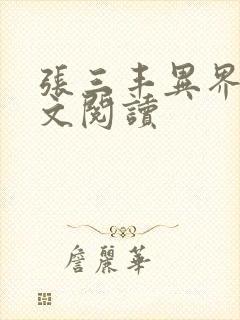 張三丰異界
文閱讀
詹麗華